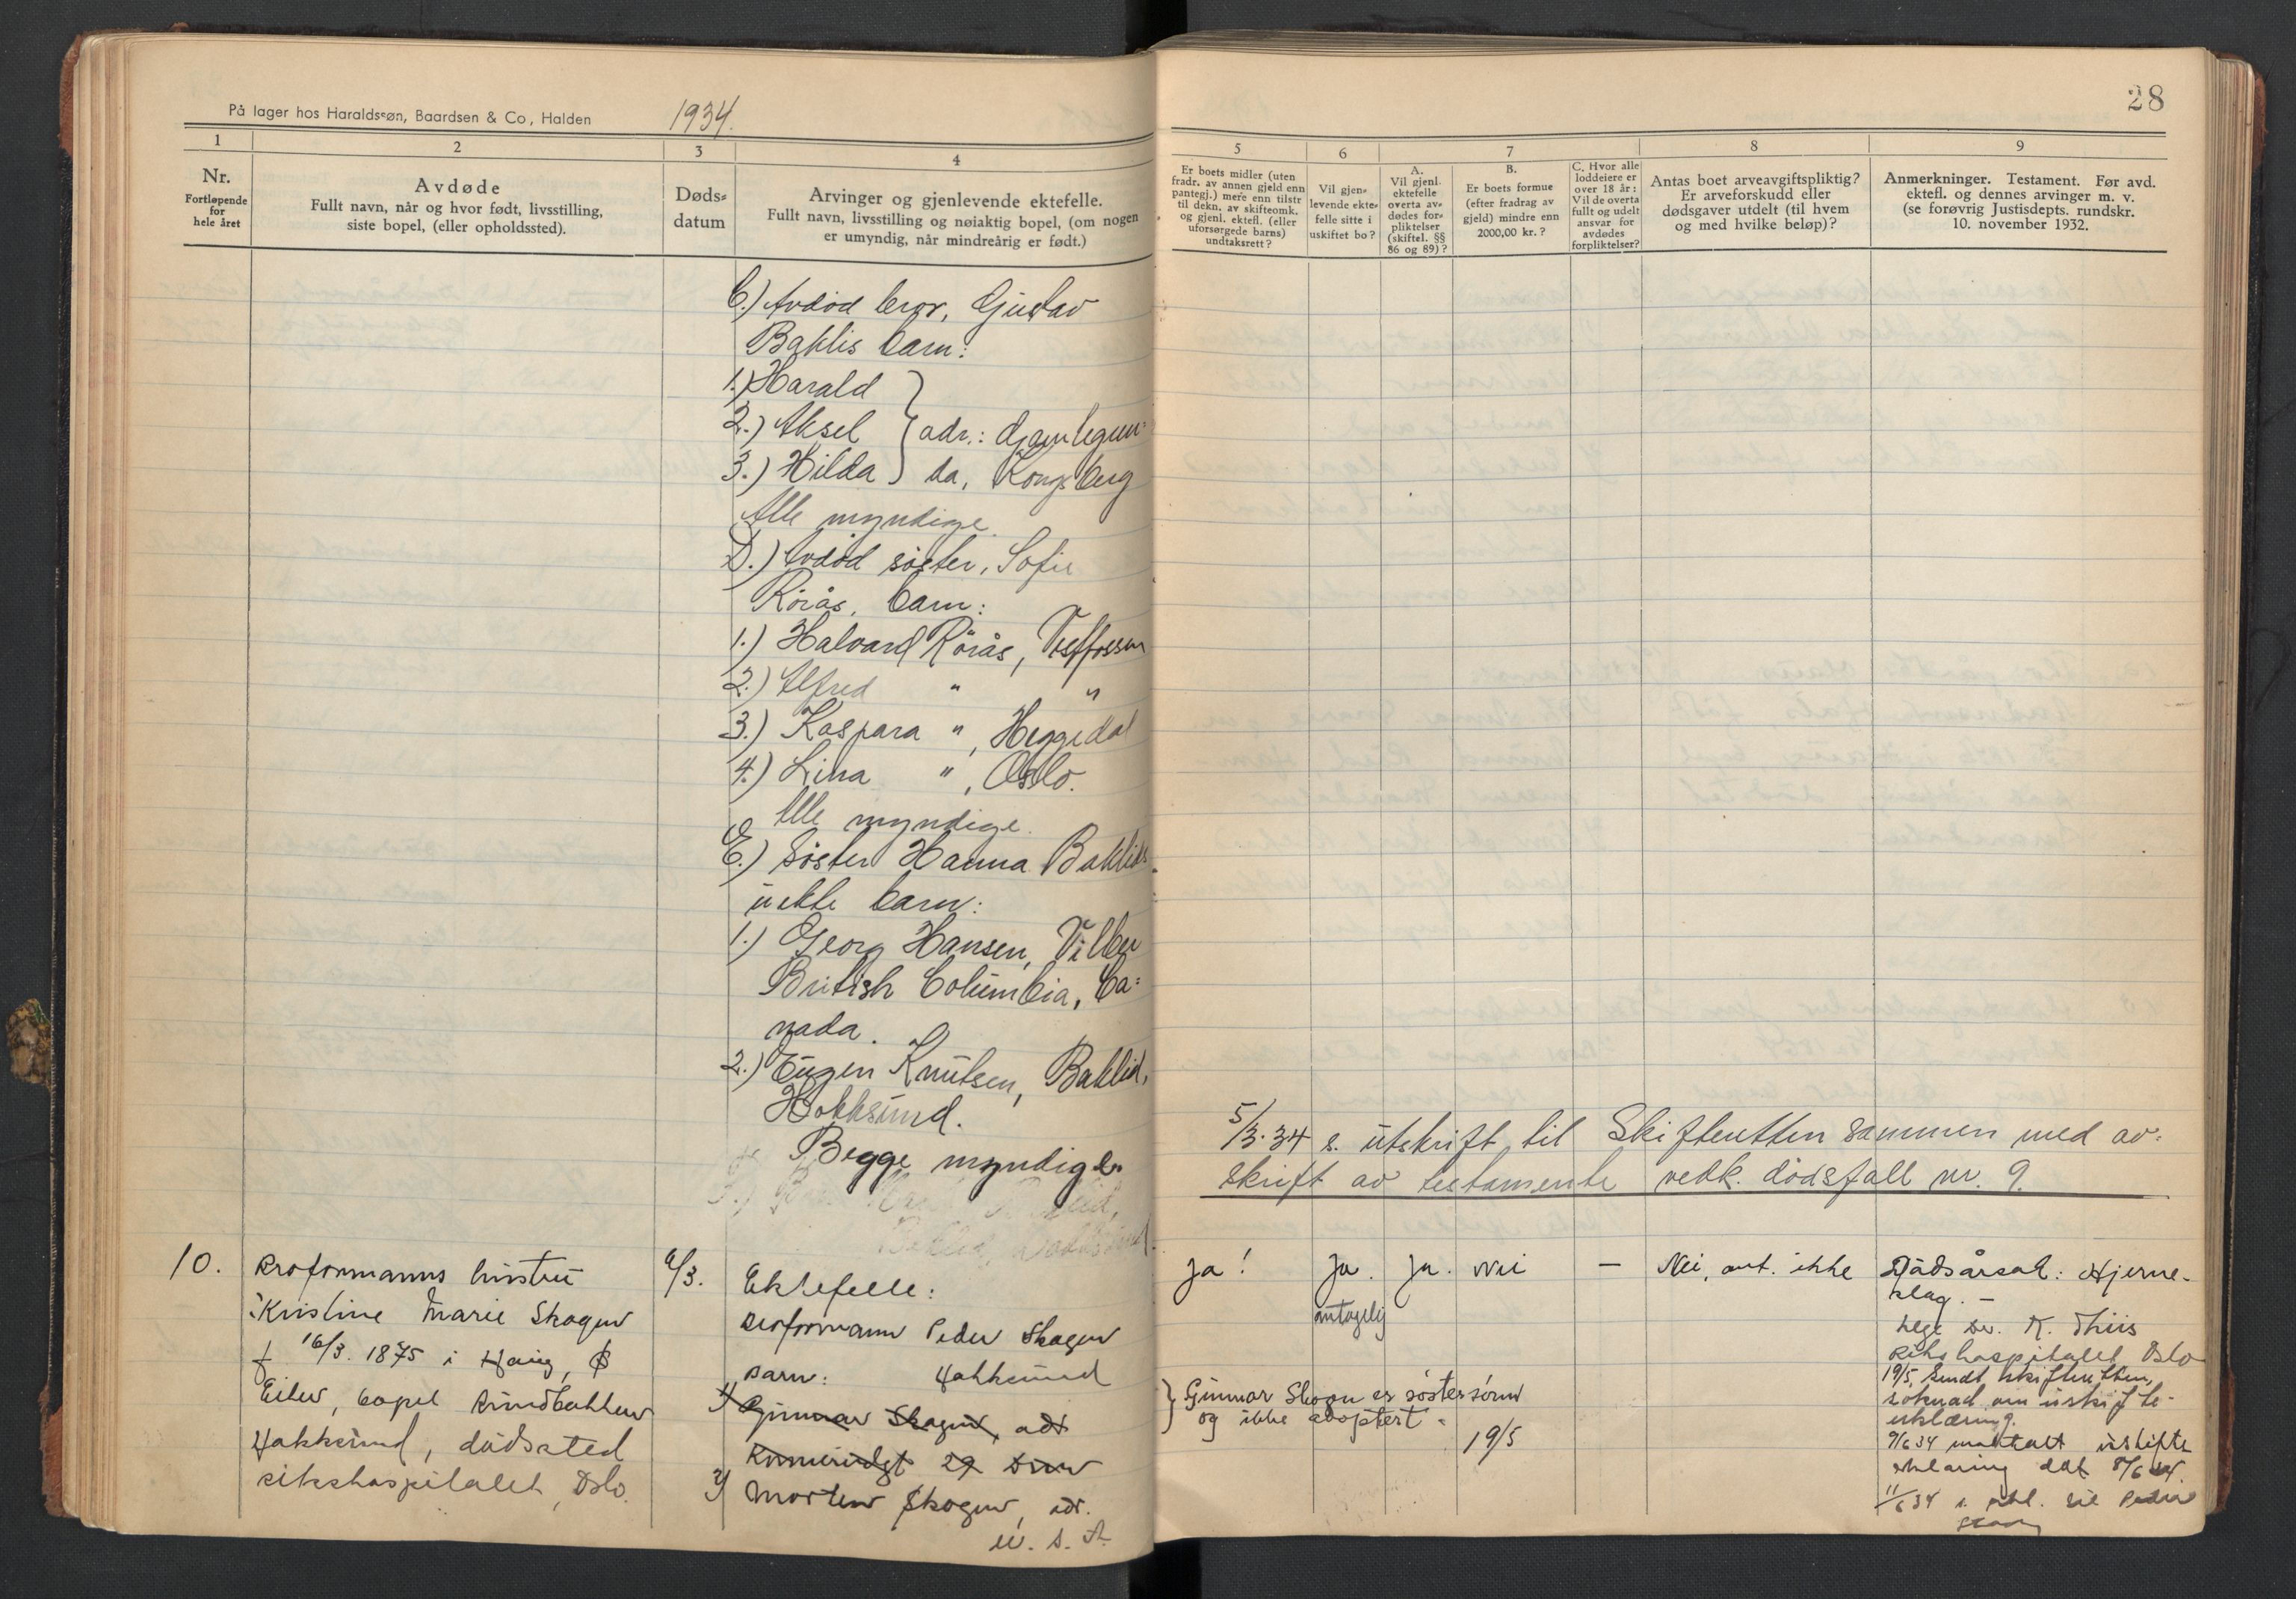 På lager hos Haraldssøn, Baardsen & Co, Halden
1934.
1
2
3
4
Nr.
Fortløpende
for
hele året
Avdøde
Fullt navn, når og hvor født, livsstilling,
siste bopel, (eller opholdssted).
Døds-
datum
Arvinger og gjenlevende ektefelle.
Fullt navn, livsstilling og nøiaktig bopel, (om nogen
er umyndig, når mindreårig er født.)
C.) Avdød bror, Gustav
Baklis barn:
1.) Harald
2.) Aksel } adr.: Gamlegrun-
3.) Hilda da, Kongsberg
Alle myndige
D.) Avdød søster, Sofie
Rørås, barn:
1.) Halvard Rørås, Vestfossen
2.) Alfred " "
3.) Kaspara ", Heggedal
4.) Lina ", Oslo.
Alle myndige.
E.) Søster Hanna Baklids
uekte barn:
1.) Georg Hansen,
British Columbia, Ca-
nada.
2.) Eugen Knutsen, Baklid,
Hokksund.
Begge myndige.
10.
Proformanns hustru
Kristine Marie Skogen
f 16/3. 1875 i Haug, Ø
Eiker, bopel Rundbakken
Hokksund, dødssted
rikshospitalet, Oslo.
6/3.
Ektefelle:
Proformann Peder Skogen
Hokksund
Barn:
1) Gunnar Skogen, adr.
29
2) Morten Skogen, adr.
U. S. A.
28
5
6
7
8
9
Er boets midler (uten
fradr. av annen gjeld enn
pantegj.) mere enn tilstr.
til dekn. av skifteomk.
og gjenl. ektefl. (eller
uforsørgede barns)
undtaksrett?
Vil gjen-
levende ekte-
felle sitte i
uskiftet bo?
A.
Vil gjenl.
ektefelle
overta av-
dødes for-
pliktelser
(skiftel. §§
86 og 89)?
B.
Er boets formue
(efter fradrag av
gjeld) mindre enn
2000,00 kr.?
C. Hvor alle
loddeiere er
over 18 år:
Vil de overta
fullt og udelt
ansvar for
avdødes
forpliktelser?
Antas boet arveavgiftspliktig?
Er arveforskudd eller
dødsgaver utdelt (til hvem
og med hvilke beløp)?
Anmerkninger. Testament. Før avd.
ektefl. og dennes arvinger m. v.
(se forøvrig Justisdepts. rundskr.
10. november 1932.
5/3.34 s. utskrift til Skifteretten sammen med av-
skrift av testamente vedk. dødsfall nr. 9.
Ja!
Ja.
antagelig
Ja.
Nei
—
Nei, ant. ikke
Dødsårsak: Hjerne-
slag. —
Lege Dr. K. Thiis
Rikshospitalet Oslo
19/5. Sendt skifteretten,
søknad om uskifte-
erklæring.
9/6 34 mottatt uskifte
erklæring dat 8/6 34.
11/6 34 s. erkl. til Peder
Skogen
} Gunnar Skogen er søstersønn
og ikke adoptert.
19/5